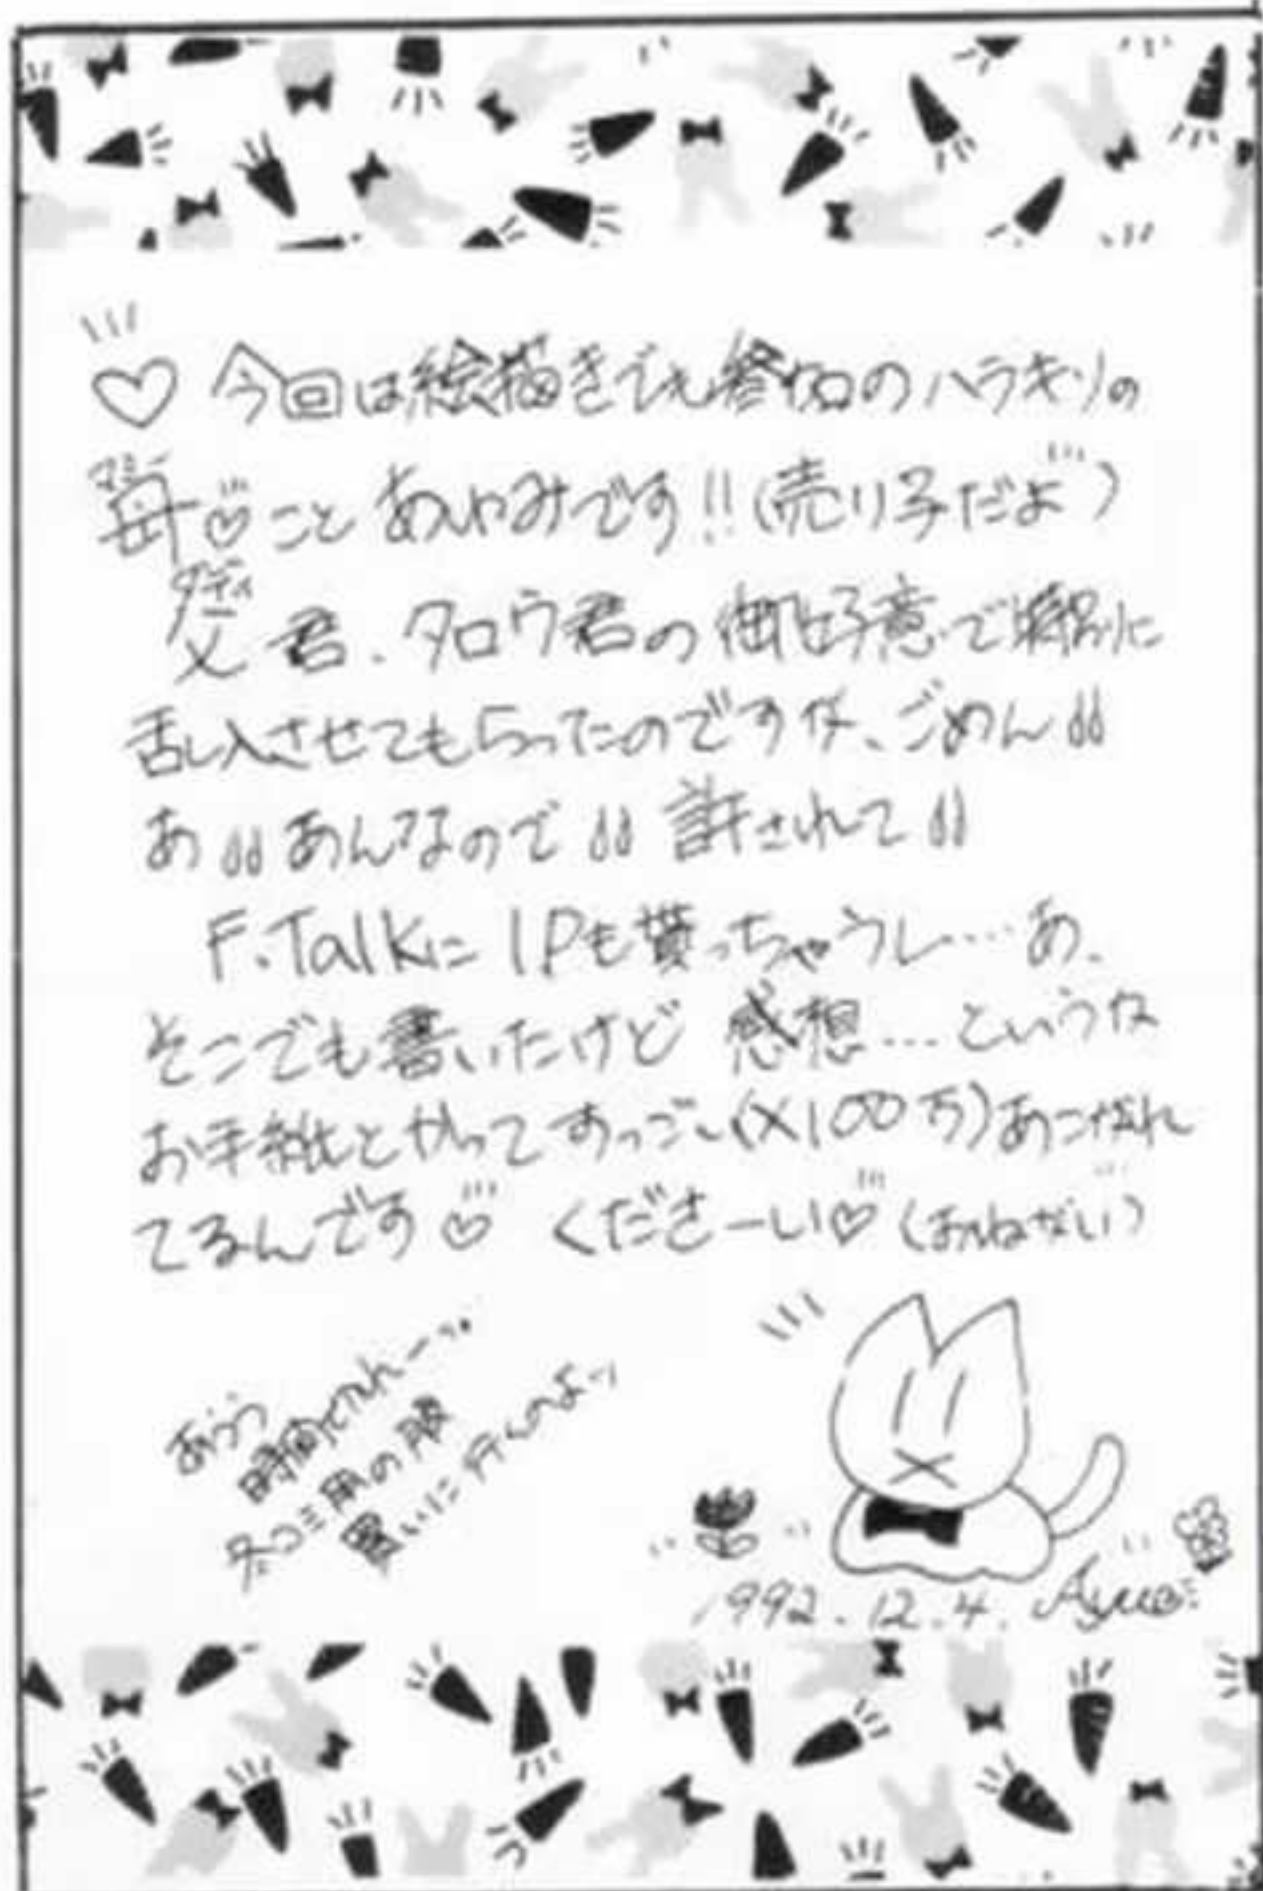 ♡ 今回は絵描きでも〆切のハラキリの
母♡こと あゆみです!!(売り子だよ)
マミー
ダディ
父君、タロウ君の御好意で特別に
乱入させてもらったのですが、ごめん
あ あんなので 許されて
F.Talkに1Pも貰っちゃうし…あ、
そこでも書いたけど 感想…というか
お手紙とかってすっごい(×100万)あこがれ
てるんです♡ くださーい♡(おねがい)
あうう
時間とれれー
冬コミ用の服
買いに行くのよッ
1992.12.4. Ayumi